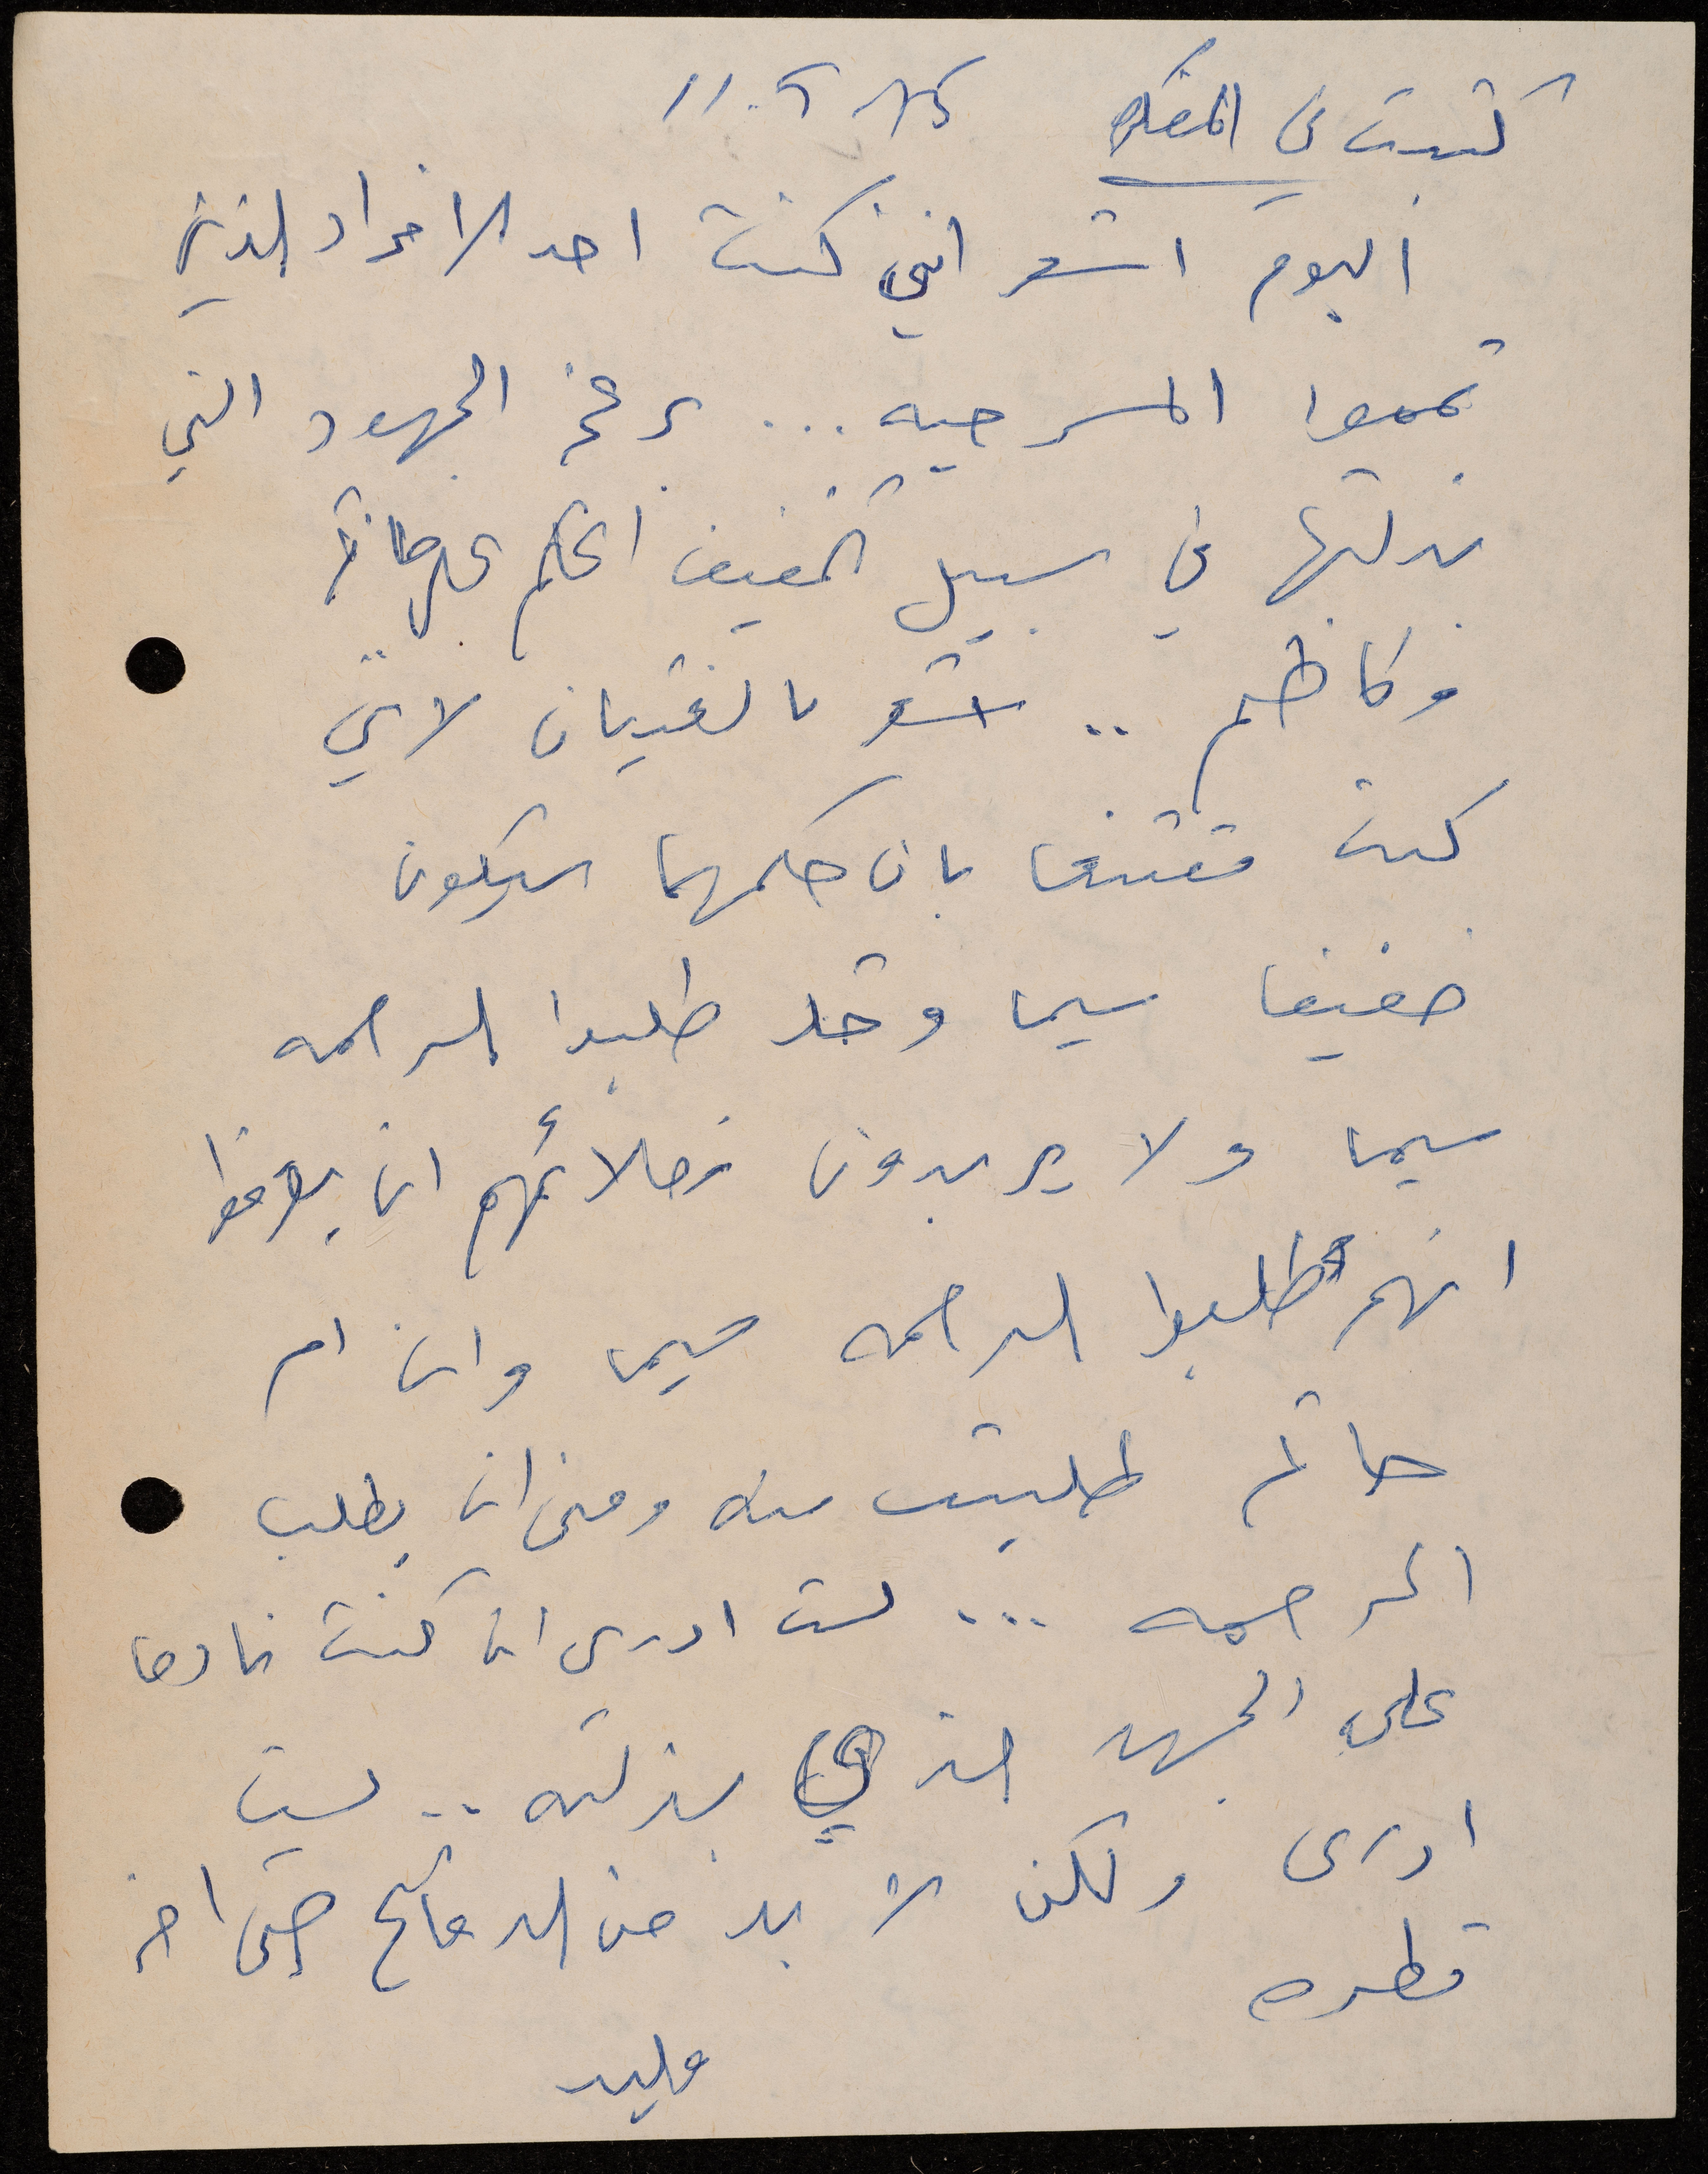 كتبت في المفكره
اليوم اشعر انني كنت احد الافراد الذين
تمموا المسرحيه ... برغم الجهود التي
بذلتها في سبيل تخفيف الحكم على حاتم
وكاظم .. اشعر بالغثيان لاني
كنت مقتنعا بان حكمهما سيكون
خفيفا سيما وقد طلبوا الرحمه
سيما ولا يريدون زملائهم ان يعرفوا
انهم طلبوا الرحمه سيما وان ام
حاتم طلبت منه ومني ان يطلب
الرحمه ... لست ادري ان كنت نادما
على الجهد الذي بذلته .. لست
ادرى ولكن لا بد من الدفاع حتى اخر
قطره
وليد